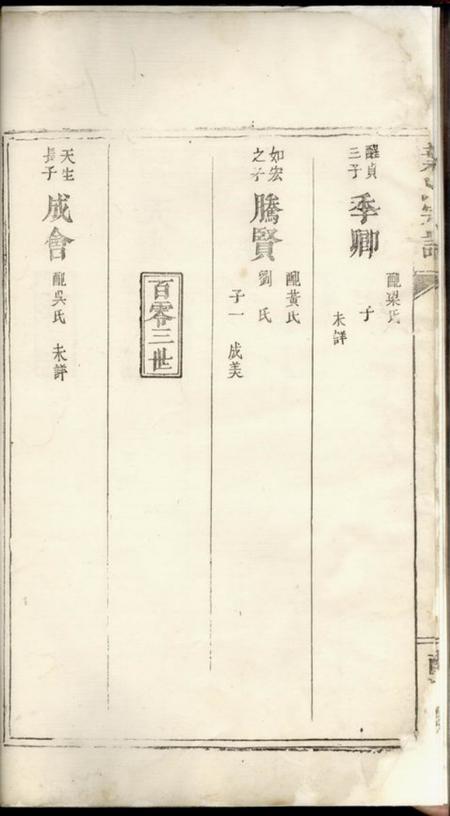 醒貞
三子
季卿
配梁氏
子
未詳
如宏
之子
騰賢
配黃氏
劉氏
子一 成美
百零三世
天生
長子
成會
配吳氏 未詳